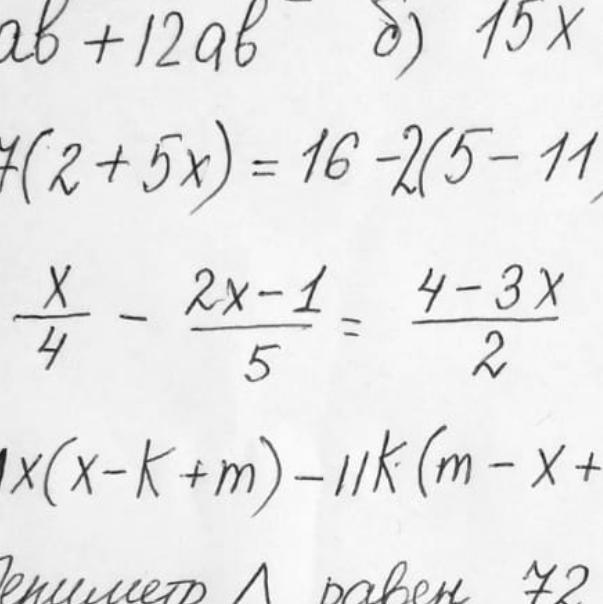 ab + 12ab б) 15x
7(2 + 5x) = 16 - 2(5 - 11
x/4 - (2x - 1)/5 = (4 - 3x)/2
x(x - k + m) - 11k(m - x +
Периметр Δ равен 72